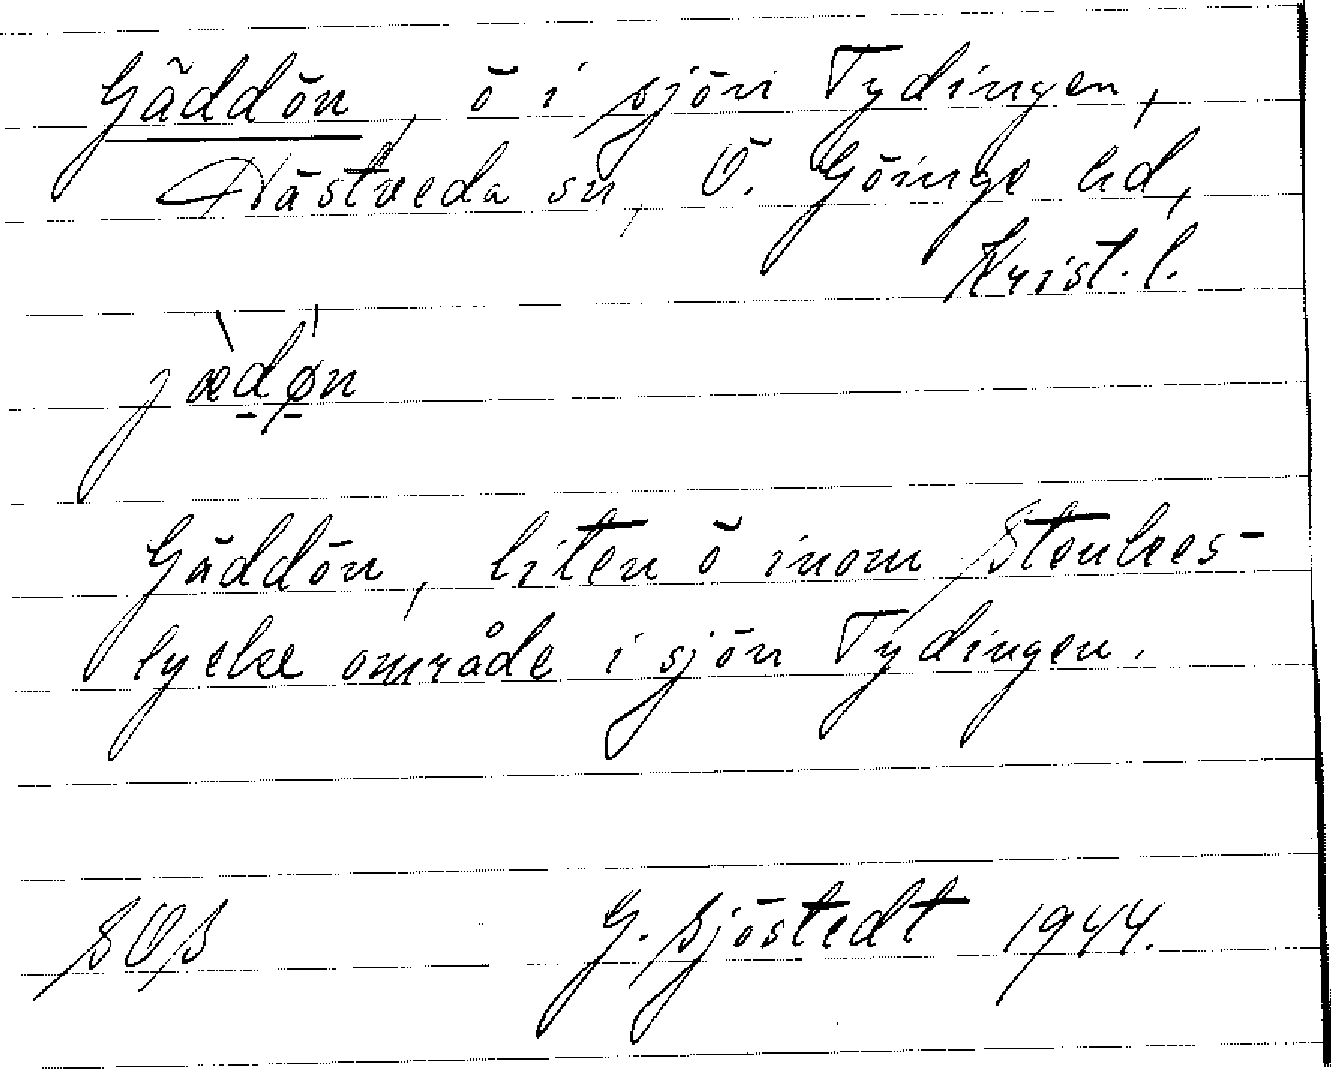 Gäddön, ö i sjön Tydingen,
Hästveda sn, Ö. Göinge hd,
Krist. l.
jæ̀dø̍n
Gäddön, liten ö inom Stenkes-
lycke område i sjön Tydingen.
SOS G. Sjöstedt 1944.